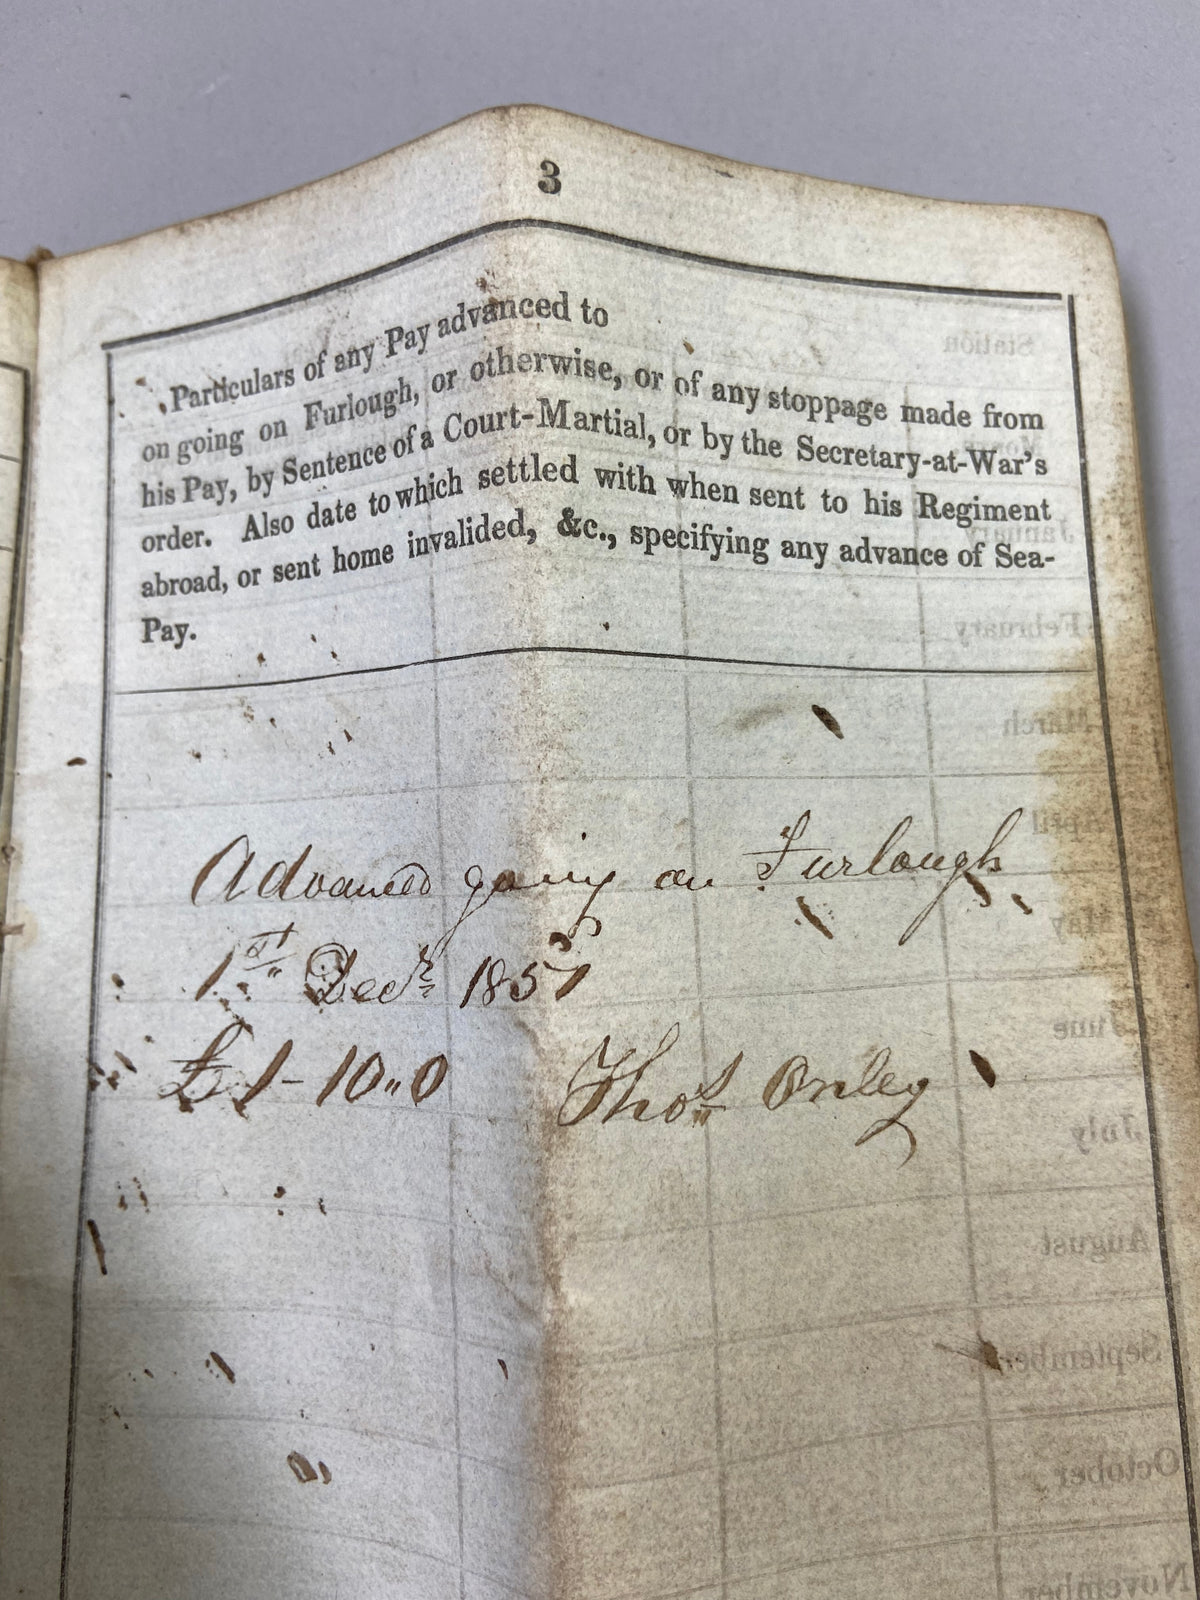 3
Particulars of any Pay advanced to
on going on Furlough, or otherwise, or of any stoppage made from
his Pay, by Sentence of a Court-Martial, or by the Secretary-at-War's
order. Also date to which settled with when sent to his Regiment
abroad, or sent home invalided, &c., specifying any advance of Sea-
Pay.
Advanced going on Furlough
1st Decr 1857
£1-10"0 Thos Onley
Station
January
February
March
April
May
June
July
August
September
October
November